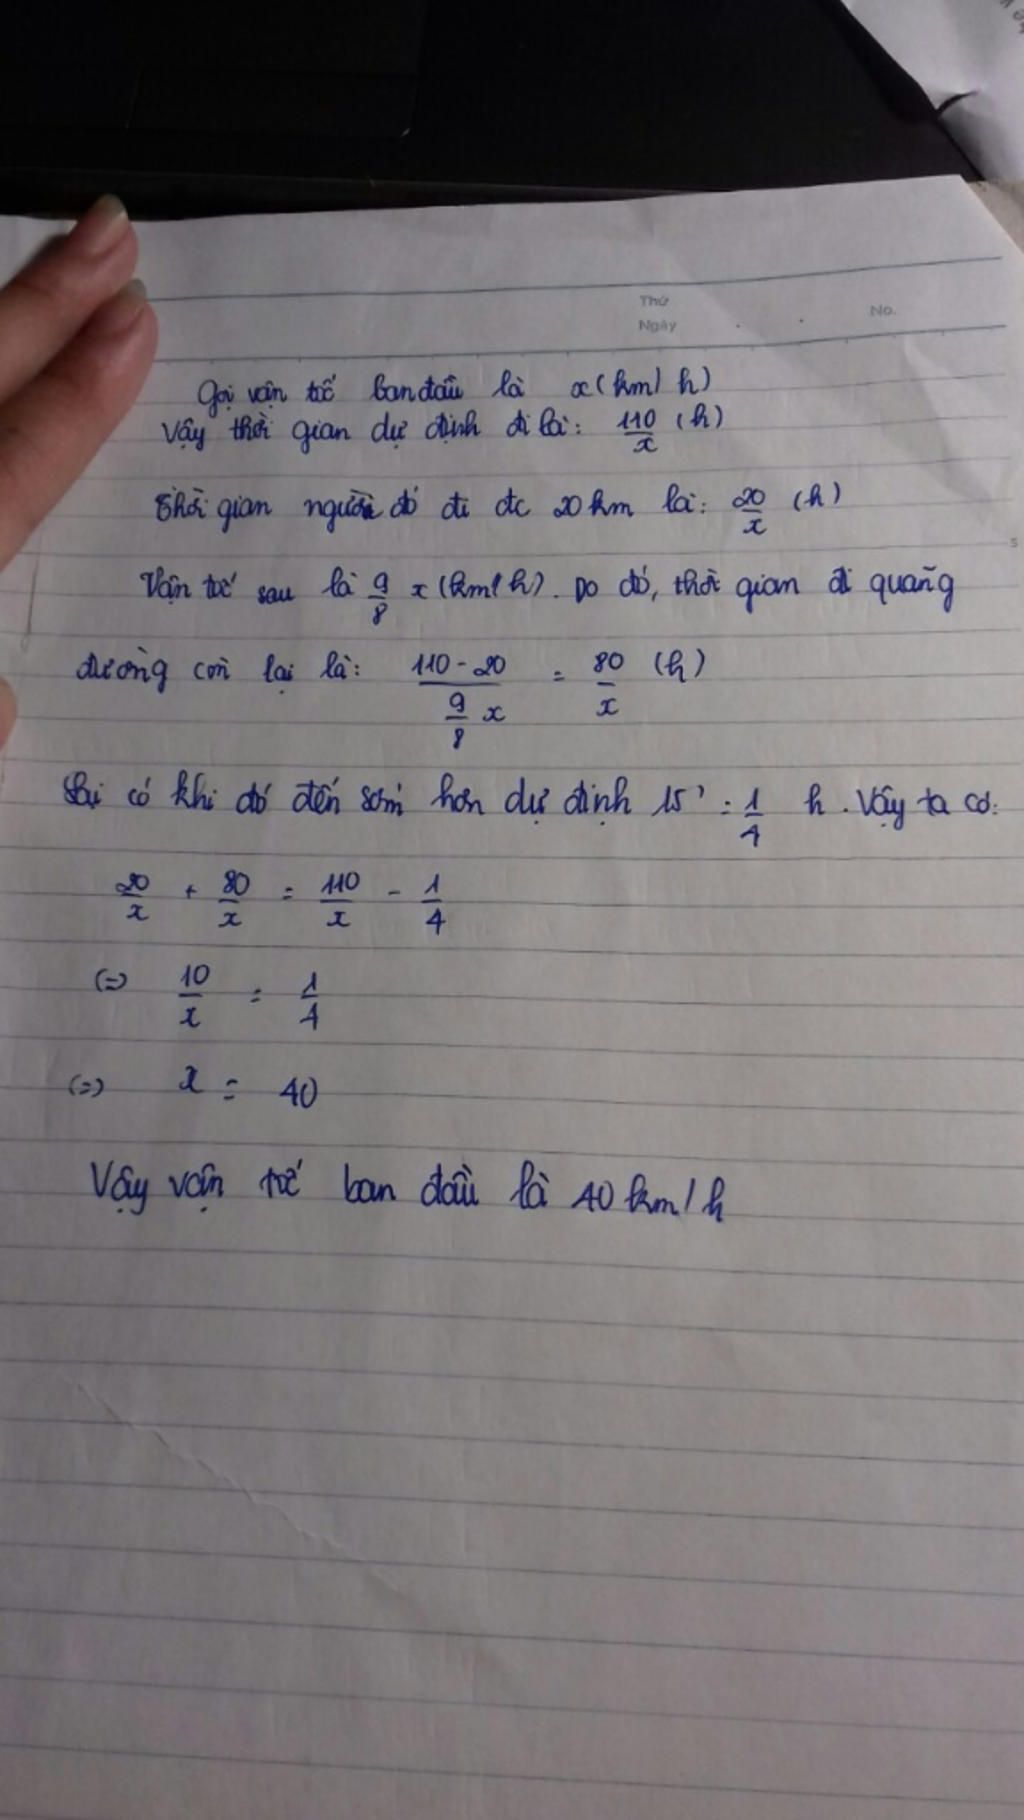 Thứ
Ngày
No.
Gọi vận tốc ban đầu là x (km/h)
Vậy thời gian dự định đi là: 110/x (h)
Thời gian người đó đi đc 20 km là: 20/x (h)
Vận tốc sau là 9/8 x (km/h). Do đó, thời gian đi quãng
đường còn lại là: (110 - 20)/(9/8 x) = 80/x (h)
Lại có khi đó đến sớm hơn dự định 15' = 1/4 h. Vậy ta có:
20/x + 80/x = 110/x - 1/4
(=) 10/x = 1/4
(=) x = 40
Vậy vận tốc ban đầu là 40 km/h